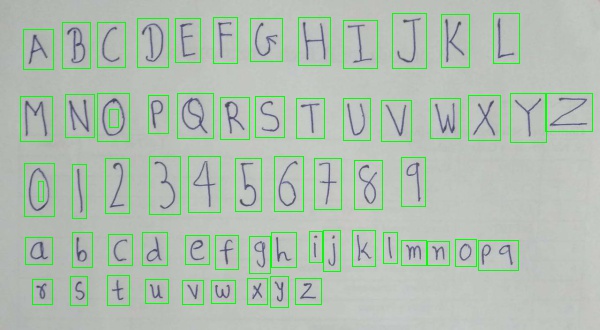 A B C D E F G H I J K L
M N O P Q R S T U V W X Y Z
0 1 2 3 4 5 6 7 8 9
a b c d e f g h i j k l m n o p q
r s t u v w x y z